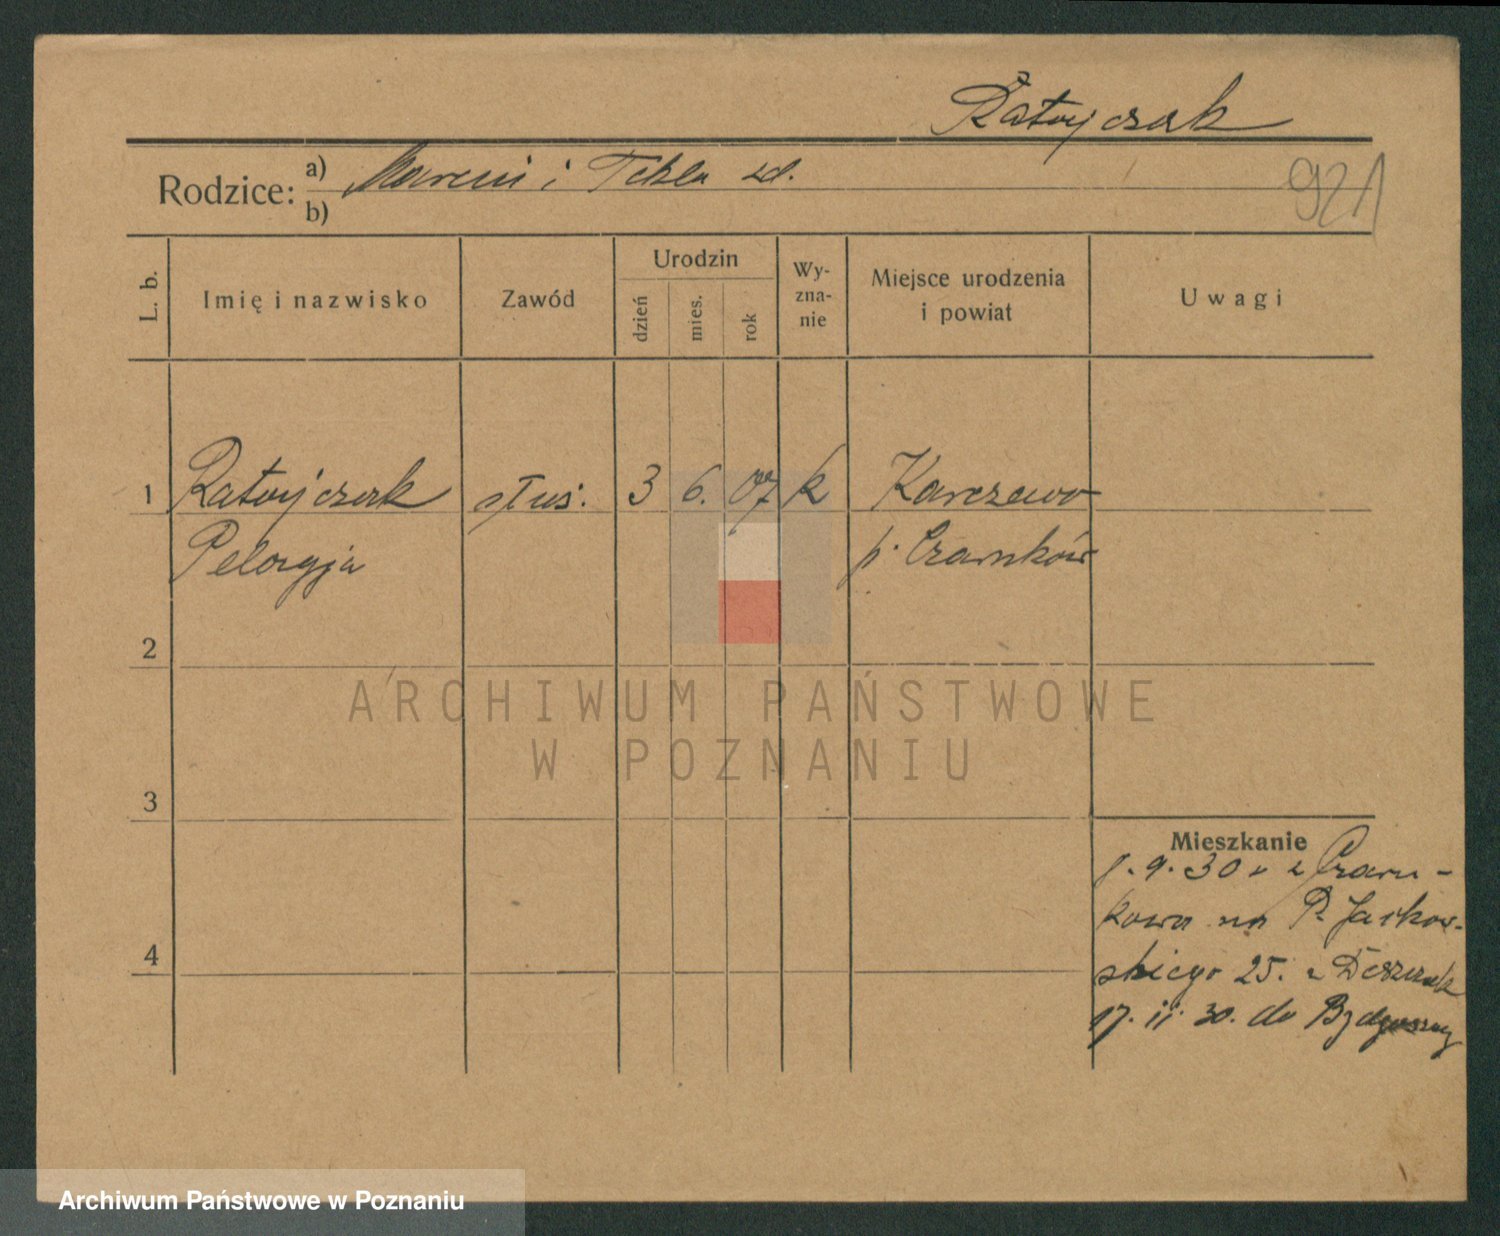 Ratajczak
Rodzice: a) Marcin i Tekla zd.
b)
921
L. b.
Imię i nazwisko
Zawód
Urodzin
dzień
mies.
rok
Wy-
zna-
nie
Miejsce urodzenia
i powiat
Uwagi
1 Ratajczak służ. 3 6. 07 k Karczewo
Pelagja p. Czarnków
2
3
4
ARCHIWUM PAŃSTWOWE
W POZNANIU
Mieszkanie
1.9.30 z Czarn-
kowa na P. Jackow-
skiego 25.
17.11.30. do Bydgoszczy
Archiwum Państwowe w Poznaniu